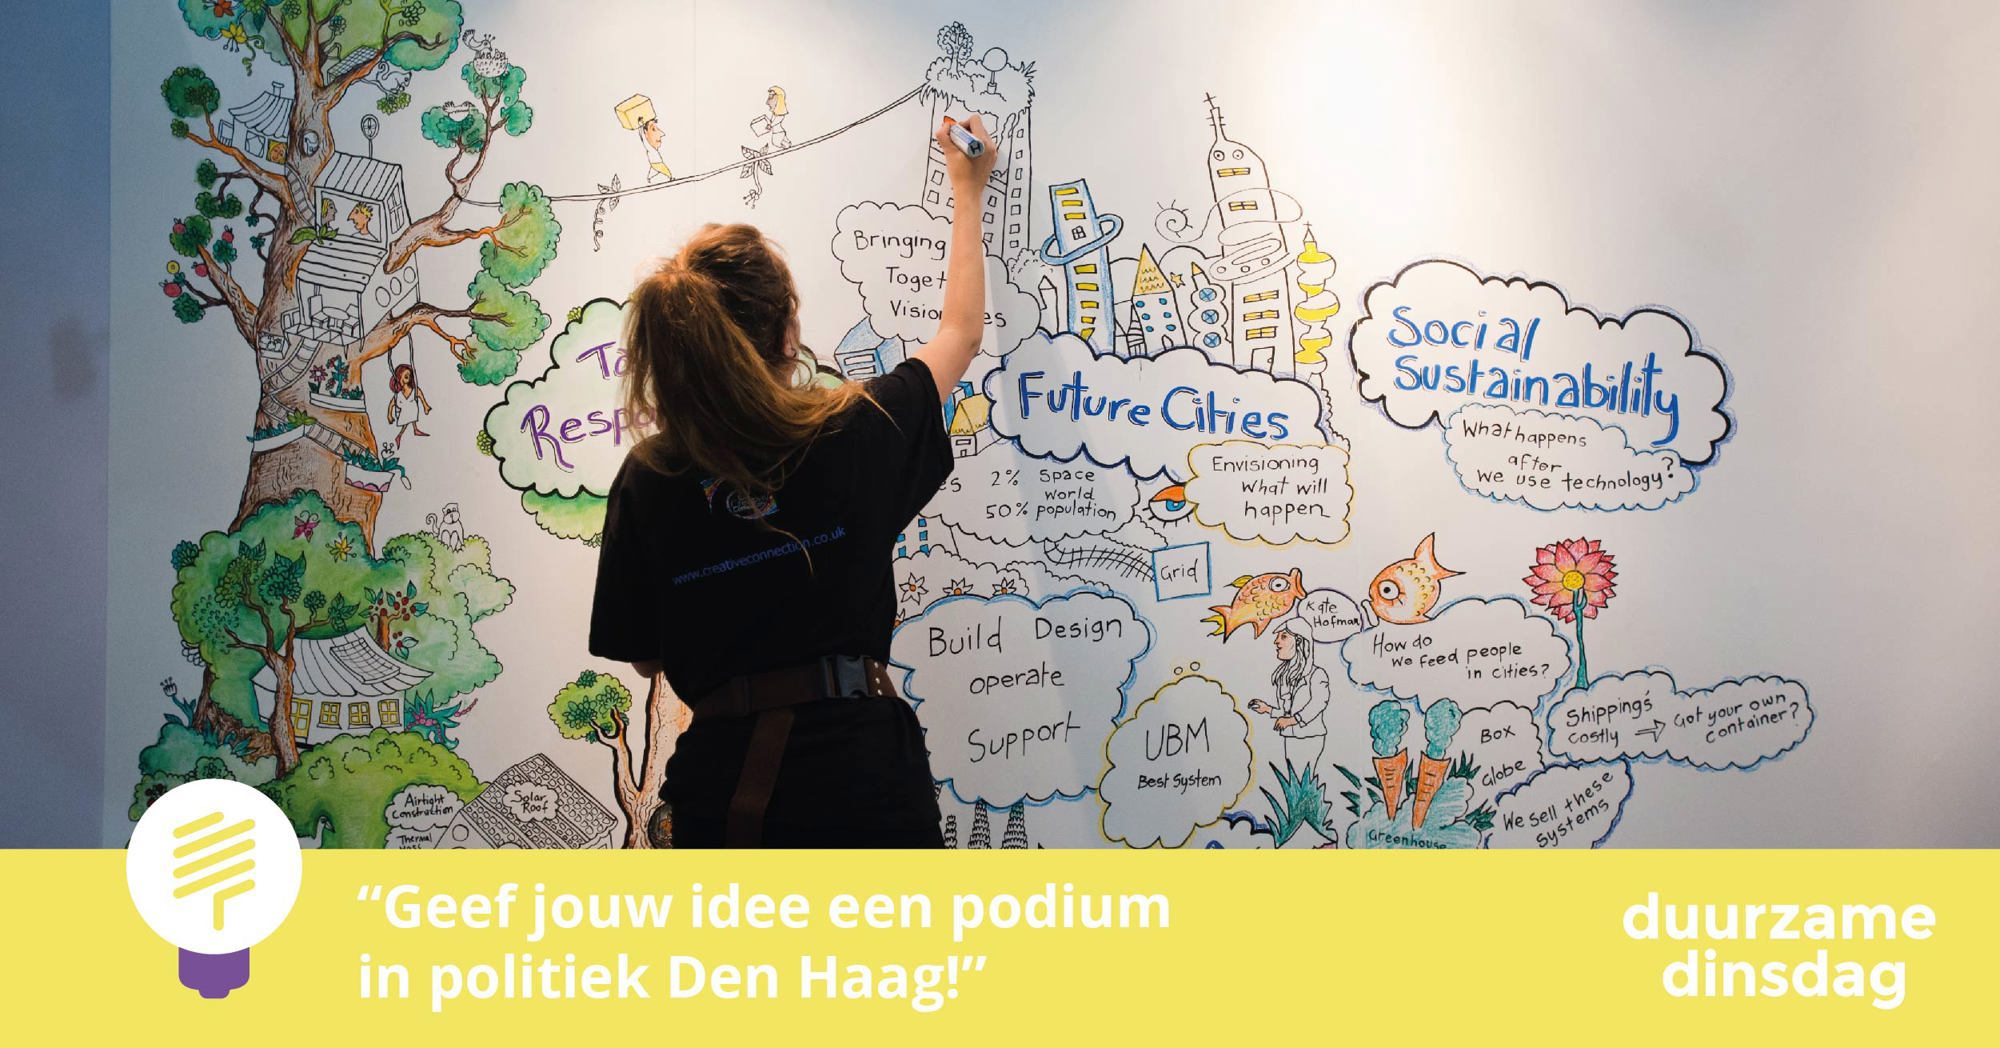 Bringing
Vision
Future Cities
Social
Sustainability
What happens
after
we use technology?
2% Space
world
50% population
Envisioning
what will
happen
Grid
www.creativeconnection.co.uk
Kate
Hofman
How do
we feed people
in cities?
Build Design
operate
Support
UBM
Best System
Shipping's
costly
Got your own
container?
Box
Globe
We sell these
systems
Greenhouse
Airtight
Construction
Thermal
Solar
Roof
“Geef jouw idee een podium
in politiek Den Haag!”
duurzame
dinsdag